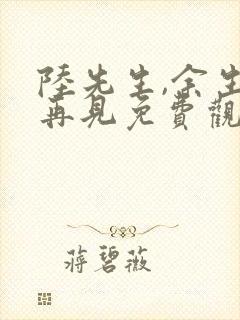 陸先生,余生
再見免費觀
蔣碧薇